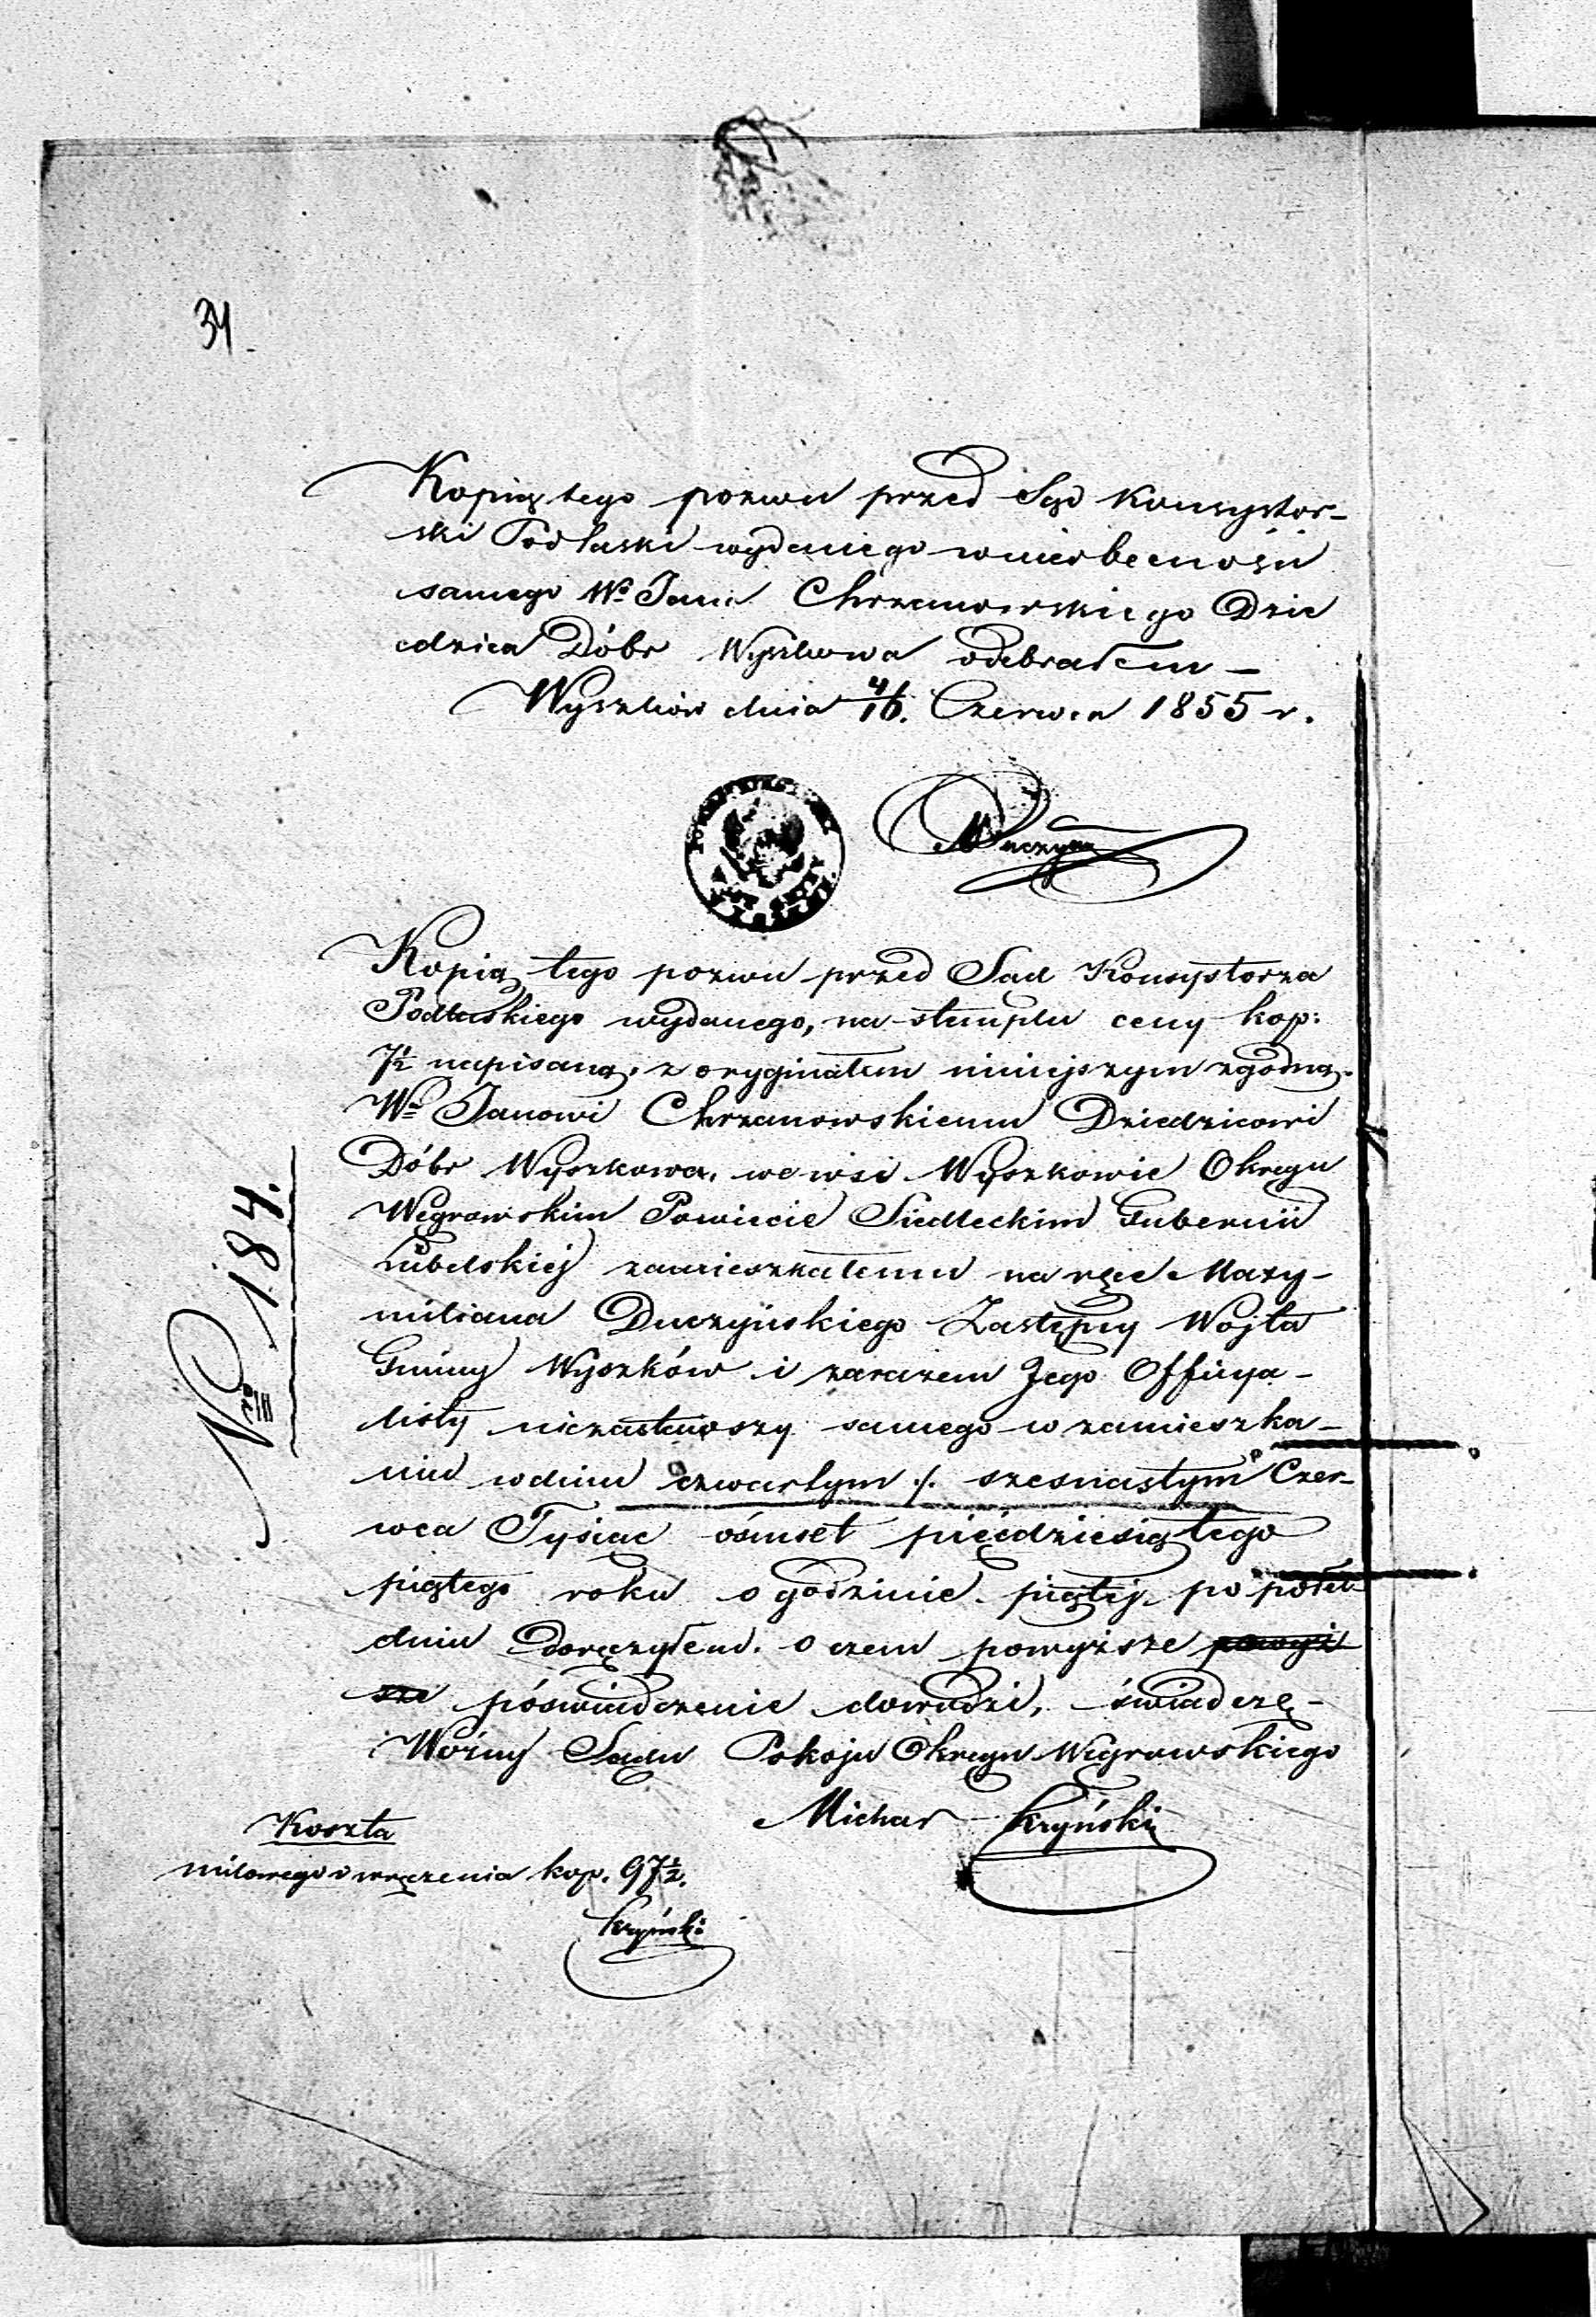 34
Kopią tego pozwu przed Sąd Konsystor-
ski Podlaski wydanego w nieobecności
samego Wo Jana Chrzanowskiego Dzie
dzica Dóbr Wyszkowa odebrałem –
Wyszków dnia 4/16. Czerwca 1855 r.
Kopią tego pozwu przed Sad Konsystorza
Podlaskiego wydanego, na stemplu ceny kop:
7½ napisaną, z oryginałem niniejszym zgodną.
Wu Janowi Chrzanowskiemu Dziedzicowi
Dóbr Wyszkowa, we wsi Wyszkowie Okręgu
Węgrowskim Powiecie Siedleckim Gubernii
Lubelskiej zamieszkałemu na ręce Maxy-
miliana Duczyńskiego Zastępcy Wojta
Gminy Wyszków i zarazem Jego Officya-
listy niezastawszy samego w zamieszka-
niu w dniu czwartym ./. szesnastym Czer-
wca Tysiac ośmset pięćdziesiątego
piątego roku o godzinie piątej po połu
dniu Doręczyłem. o czem powyższe powyż
sze poświadczenie dowodzi, świadczę –
Woźny Sądu Pokoju Okręgu Węgrowskiego
Michał Kryński
No 184.
Koszta
milowego i wręczenia kop. 97½.
Kryński